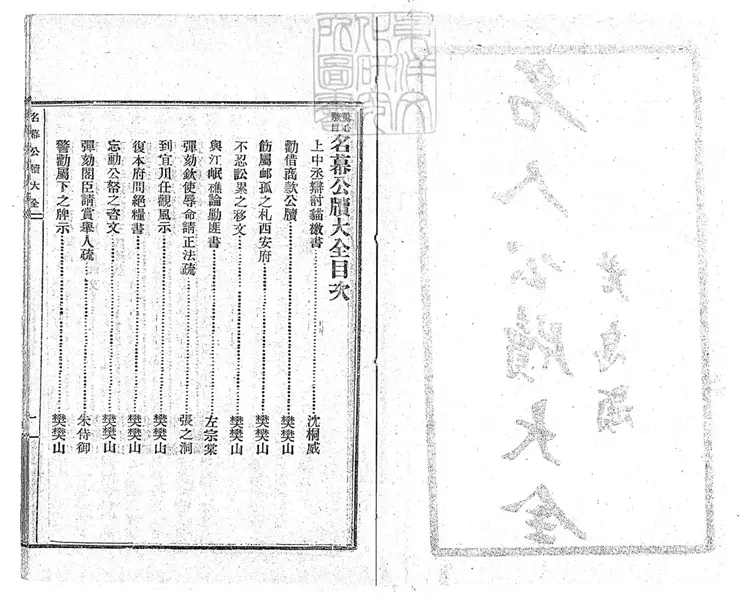 名人公牘大全
東洋文
化研究
所圖書
名幕公牘大全目次
上中丞辯討貓檄書………沈桐威
勸借商款公牘………樊樊山
飭屬邮孤之札西安府………樊樊山
不忍訟累之移文………樊樊山
與江岷樵論勦匪書………左宗棠
彈劾欽使辱命請正法疏………張之洞
到宜川任觀風示………樊樊山
復本府問絕糧書………樊樊山
忘動公帑之咨文………樊樊山
彈劾閣臣請賞舉人疏………朱侍御
警勸屬下之牌示………樊樊山
名幕公牘大全 一